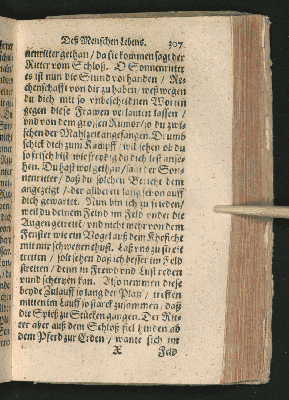 Deß Menschen Lebens. 307
nenritter gethan / da sie kommen sagt der
Ritter vom Schloß. O Sonnenritter
es ist nun die Stund vorhanden / Re-
chenschafft von dir zu haben / weßwegen
du dich mit so unbescheidnen Worten
gegen diese Frawen verlauten lassen /
und von dem grossen Rumor / so du zwi-
schen der Mahlzeit angefangen. Drumb
schick dich zum Kampff / wil sehen ob du
so frisch bist wie freydig du dich lest anse-
hen. Du hast wol gethan / saat der Son-
nenritter / daß du solchen Bericht dem
angezeigt / der allbereit lang hie von auff
dich gewartet. Nun bin ich zu frieden /
weil du deinem Feind im Feld under die
Augen getrettē / und nicht mehr von dem
Fenster wie ein Vogel auß dem Kefficht
mit mir schwetzen thust. Laß uns zu streit
tretten / solt sehen daß ich besser im Feld
streiten / denn in Frewd und Lust reden
und schertzen kan. Also nemmen diese
beyde Zulauff so lang der Platz / treffen
mitten im Lauff so starck zusammen / daß
die Spieß zu Stücken gangen. Der Rit-
ter aber auß dem Schloß fiel hinden ab
dem Pferd zur Erden / wante sich im
X Feld